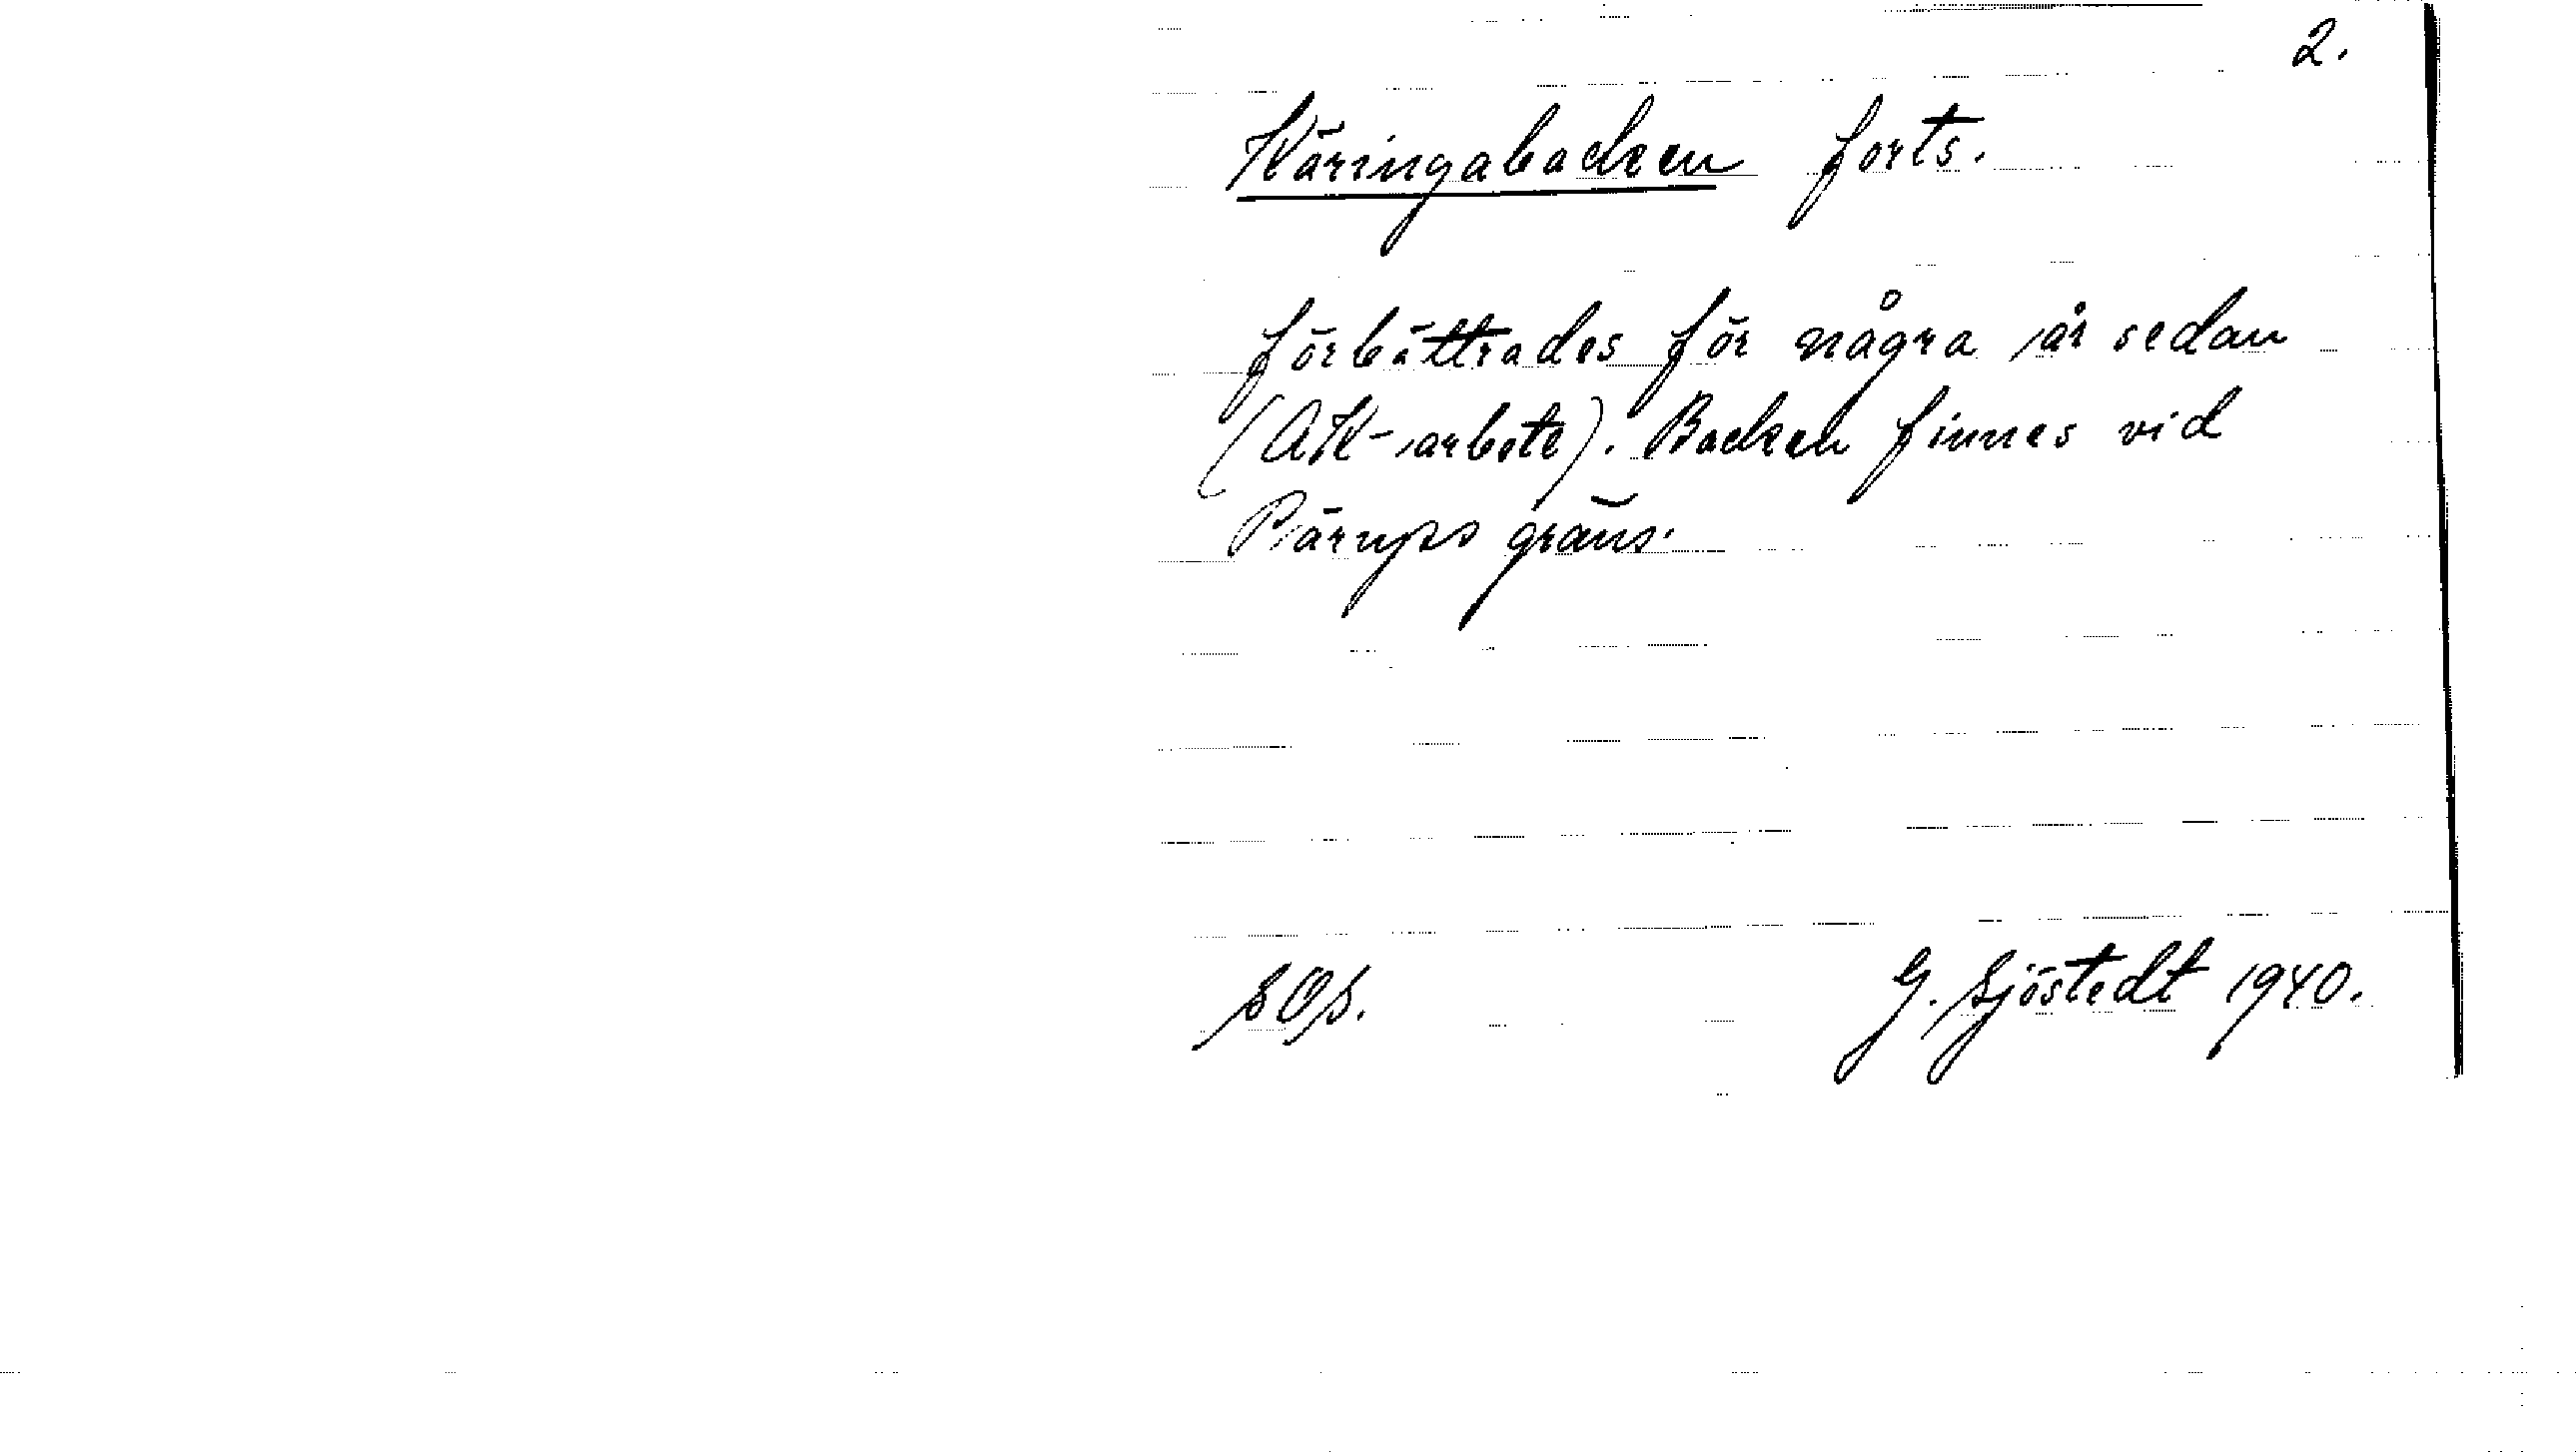 2.
Käringabacken forts.
förbättrades för några år sedan
(AK-arbete). Backen finnes vid
Pärups gräns.
SOS. G. Sjöstedt 1940.